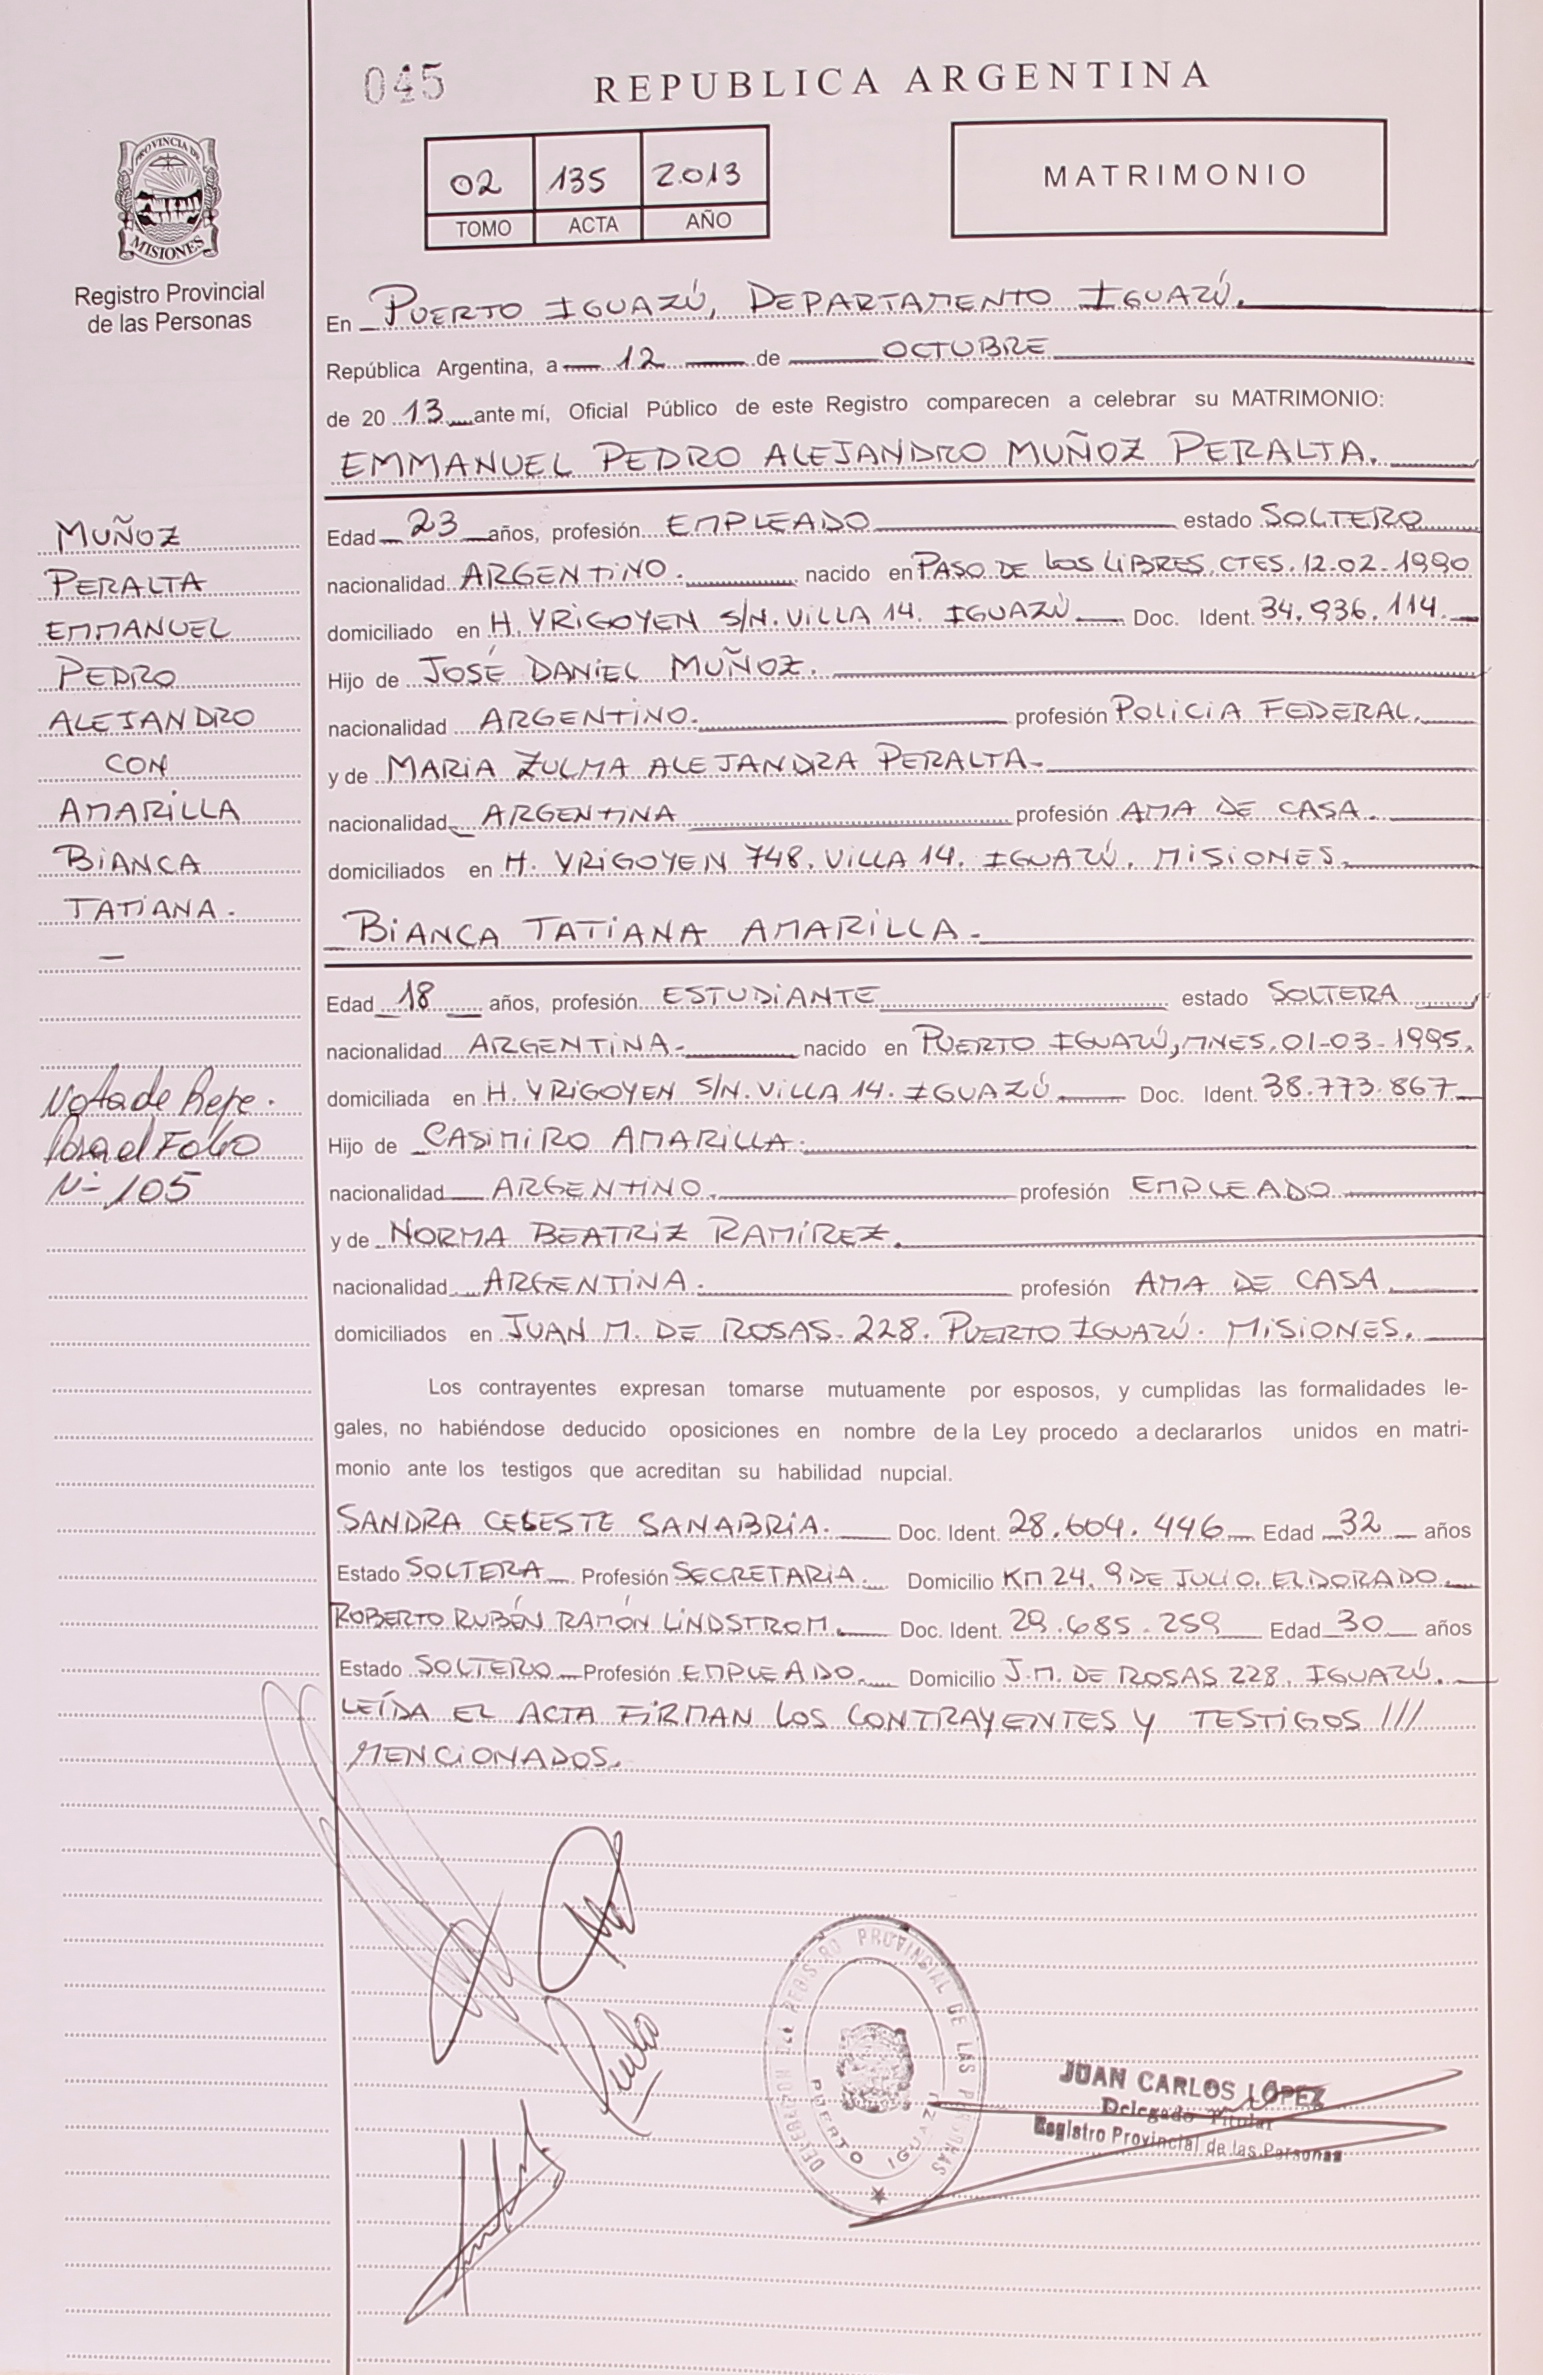 045
REPUBLICA ARGENTINA
02 135 2.013
TOMO ACTA AÑO
MATRIMONIO
PROVINCIA DE
MISIONES
Registro Provincial
de las Personas
En PUERTO IGUAZÚ, DEPARTAMENTO IGUAZÚ.
República Argentina, a 12 de OCTUBRE
de 20 13 ante mí, Oficial Público de este Registro comparecen a celebrar su MATRIMONIO:
EMMANUEL PEDRO ALEJANDRO MUÑOZ PERALTA.
Edad 23 años, profesión EMPLEADO estado SOLTERO
nacionalidad ARGENTINO. nacido en PASO DE LOS LIBRES. CTES. 12-02-1990
domiciliado en H. YRIGOYEN S/N. VILLA 14. IGUAZÚ Doc. Ident. 34.936.114.
Hijo de JOSÉ DANIEL MUÑOZ.
nacionalidad ARGENTINO. profesión POLICIA FEDERAL.
y de MARIA ZULMA ALEJANDRA PERALTA-
nacionalidad ARGENTINA profesión AMA DE CASA.
domiciliados en H. YRIGOYEN 748. VILLA 14. IGUAZÚ. MISIONES.
BIANCA TATIANA AMARILLA.
Edad 18 años, profesión ESTUDIANTE estado SOLTERA
nacionalidad ARGENTINA. nacido en PUERTO IGUAZÚ, MNES. 01-03-1995.
domiciliada en H. YRIGOYEN S/N. VILLA 14. IGUAZÚ Doc. Ident. 38.773.867
Hijo de CASIMIRO AMARILLA.
nacionalidad ARGENTINO. profesión EMPLEADO
y de NORMA BEATRIZ RAMÍREZ.
nacionalidad ARGENTINA. profesión AMA DE CASA
domiciliados en JUAN M. DE ROSAS. 228. PUERTO IGUAZÚ. MISIONES.
Los contrayentes expresan tomarse mutuamente por esposos, y cumplidas las formalidades le-
gales, no habiéndose deducido oposiciones en nombre de la Ley procedo a declararlos unidos en matri-
monio ante los testigos que acreditan su habilidad nupcial.
SANDRA CELESTE SANABRIA. Doc. Ident. 28.604.446 Edad 32 años
Estado SOLTERA Profesión SECRETARIA. Domicilio KM 24. 9 DE JULIO. ELDORADO
ROBERTO RUBÉN RAMÓN LINDSTROM. Doc. Ident. 29.685.259 Edad 30 años
Estado SOLTERO Profesión EMPLEADO. Domicilio J.M. DE ROSAS 228. IGUAZÚ.
LEÍDA EL ACTA FIRMAN LOS CONTRAYENTES Y TESTIGOS ///
MENCIONADOS.
MUÑOZ
PERALTA
EMMANUEL
PEDRO
ALEJANDRO
CON
AMARILLA
BIANCA
TATIANA.
Nota de Refe.
Para el Folio
Nº 105
REGISTRO PROVINCIAL DE LAS PERSONAS
PUERTO IGUAZU
JUAN CARLOS LÓPEZ
Delegado Titular
Registro Provincial de las Personas